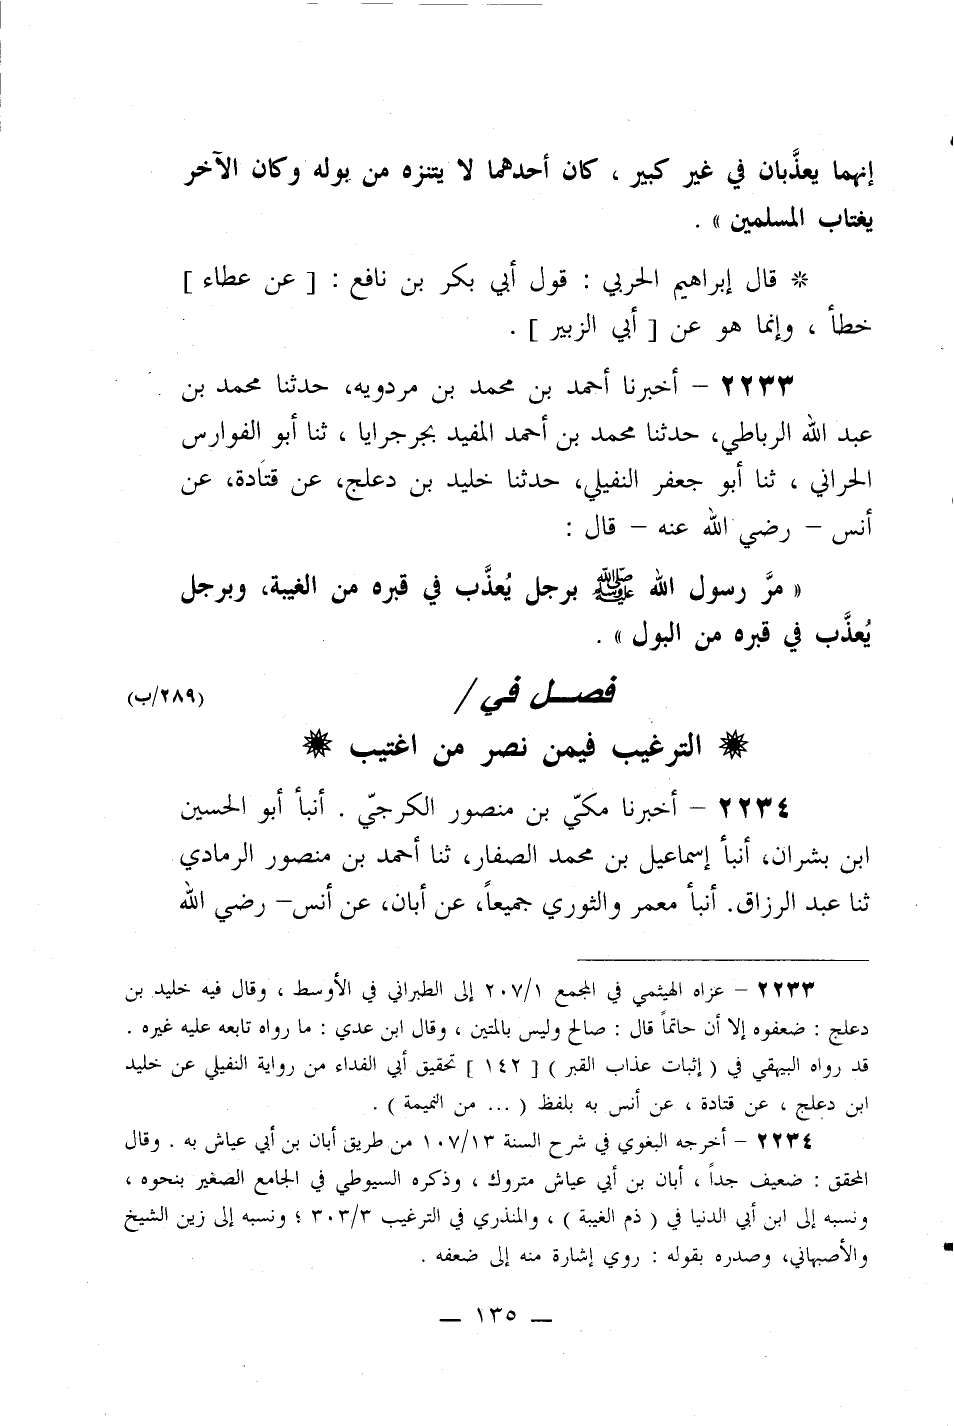 إنهما يعذَّبان في غير كبير ، كان أحدهما لا يتنزه من بوله وكان الآخر
يغتاب المسلمين » .
* قال إبراهيم الحربي : قول أبي بكر بن نافع : [ عن عطاء ]
خطأ ، وإنما هو عن [ أبي الزبير ] .
٢٢٣٣ – أخبرنا أحمد بن محمد بن مردويه، حدثنا محمد بن
عبد الله الرباطي، حدثنا محمد بن أحمد المفيد بجرجرايا ، ثنا أبو الفوارس
الحراني ، ثنا أبو جعفر النفيلي، حدثنا خليد بن دعلج، عن قتادة، عن
أنس – رضي الله عنه – قال :
« مرَّ رسول الله ﷺ برجل يُعذَّب في قبره من الغيبة، وبرجل
يُعذَّب في قبره من البول » .
فصـــل في /
(٢٨٩/ب)
الترغيب فيمن نصر من اغتيب
٢٢٣٤ – أخبرنا مكيّ بن منصور الكرجيّ . أنبأ أبو الحسين
ابن بشران، أنبأ إسماعيل بن محمد الصفار، ثنا أحمد بن منصور الرمادي
ثنا عبد الرزاق. أنبأ معمر والثوري جميعاً، عن أبان، عن أنس– رضي الله
٢٢٣٣ – عزاه الهيثمي في المجمع ٢٠٧/١ إلى الطبراني في الأوسط ، وقال فيه خليد بن
دعلج : ضعفوه إلا أن حاتماً قال : صالح وليس بالمتين ، وقال ابن عدي : ما رواه تابعه عليه غيره .
قد رواه البيهقي في ( إثبات عذاب القبر ) [ ١٤٢ ] تحقيق أبي الفداء من رواية النفيلي عن خليد
ابن دعلج ، عن قتادة ، عن أنس به بلفظ ( ... من النميمة ) .
٢٢٣٤ – أخرجه البغوي في شرح السنة ١٠٧/١٣ من طريق أبان بن أبي عياش به . وقال
المحقق : ضعيف جداً ، أبان بن أبي عياش متروك ، وذكره السيوطي في الجامع الصغير بنحوه ،
ونسبه إلى ابن أبي الدنيا في ( ذم الغيبة ) ، والمنذري في الترغيب ٣٠٣/٣ ؛ ونسبه إلى زين الشيخ
والأصبهاني، وصدره بقوله : روي إشارة منه إلى ضعفه .
— ١٣٥ —